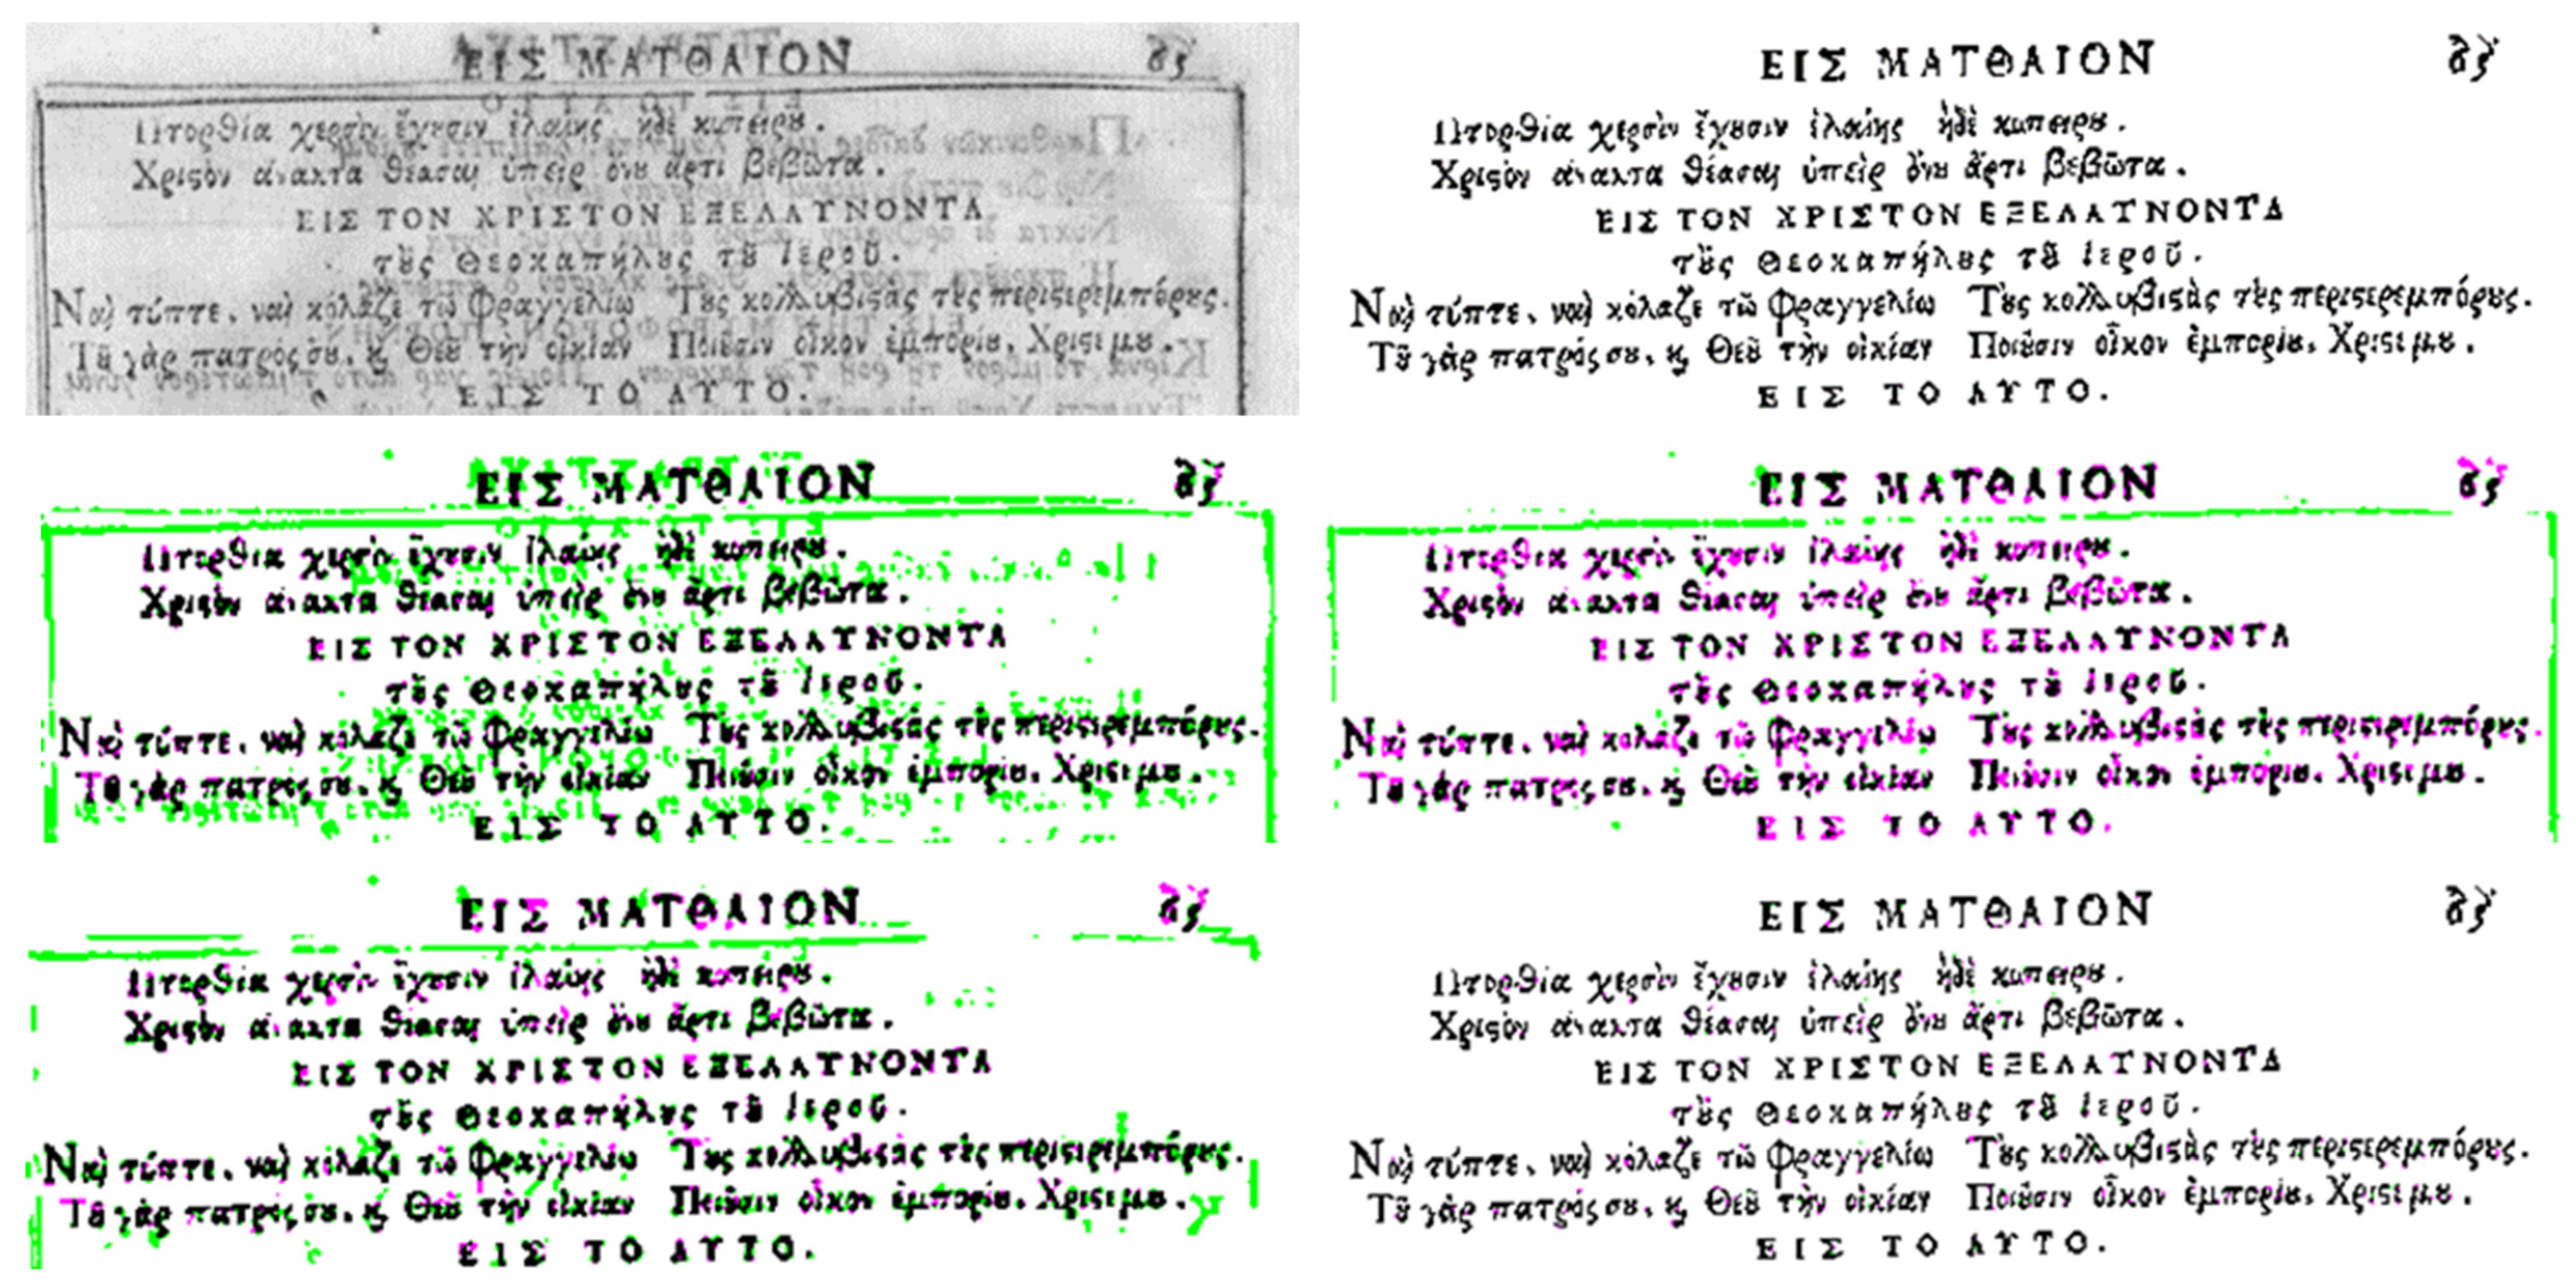 ΕΙΣ ΜΑΤΘΑΙΟΝ
Πτορθία χερσὶν ἔχουσιν ἐλαίης ἠδὲ κυπείρου.
Χριϛὸν ἄνακτα θέασαι ὑπεὶρ ὄνου ἄρτι βεβῶτα.
ΕΙΣ ΤΟΝ ΧΡΙΣΤΟΝ ΕΞΕΛΑΥΝΟΝΤΑ
τοὺς Θεοκαπήλους τοῦ Ἱεροῦ.
Ναὶ τύπτε, ναὶ κόλαζε τῷ Φραγγελίῳ Τοὺς κολλυβιϛὰς τοὺς περιϛερεμπόρους.
Τοῦ γὰρ πατρός σου, ϗ Θεοῦ τὴν οἰκίαν Ποιοῦσιν οἶκον ἐμπορίου, Χριϛέ μου.
ΕΙΣ ΤΟ ΑΥΤΟ.
ΕΙΣ ΜΑΤΘΑΙΟΝ
Πτορθία χερσὶν ἔχουσιν ἐλαίης ἠδὲ κυπείρου.
Χριϛὸν ἄνακτα θέασαι ὑπεὶρ ὄνου ἄρτι βεβῶτα.
ΕΙΣ ΤΟΝ ΧΡΙΣΤΟΝ ΕΞΕΛΑΥΝΟΝΤΑ
τοὺς Θεοκαπήλους τοῦ Ἱεροῦ.
Ναὶ τύπτε, ναὶ κόλαζε τῷ Φραγγελίῳ Τοὺς κολλυβιϛὰς τοὺς περιϛερεμπόρους.
Τοῦ γὰρ πατρός σου, ϗ Θεοῦ τὴν οἰκίαν Ποιοῦσιν οἶκον ἐμπορίου, Χριϛέ μου.
ΕΙΣ ΤΟ ΑΥΤΟ.
ΕΙΣ ΜΑΤΘΑΙΟΝ
Πτορθία χερσὶν ἔχουσιν ἐλαίης ἠδὲ κυπείρου.
Χριϛὸν ἄνακτα θέασαι ὑπεὶρ ὄνου ἄρτι βεβῶτα.
ΕΙΣ ΤΟΝ ΧΡΙΣΤΟΝ ΕΞΕΛΑΥΝΟΝΤΑ
τοὺς Θεοκαπήλους τοῦ Ἱεροῦ.
Ναὶ τύπτε, ναὶ κόλαζε τῷ Φραγγελίῳ Τοὺς κολλυβιϛὰς τοὺς περιϛερεμπόρους.
Τοῦ γὰρ πατρός σου, ϗ Θεοῦ τὴν οἰκίαν Ποιοῦσιν οἶκον ἐμπορίου, Χριϛέ μου.
ΕΙΣ ΤΟ ΑΥΤΟ.
ΕΙΣ ΜΑΤΘΑΙΟΝ
Πτορθία χερσὶν ἔχουσιν ἐλαίης ἠδὲ κυπείρου.
Χριϛὸν ἄνακτα θέασαι ὑπεὶρ ὄνου ἄρτι βεβῶτα.
ΕΙΣ ΤΟΝ ΧΡΙΣΤΟΝ ΕΞΕΛΑΥΝΟΝΤΑ
τοὺς Θεοκαπήλους τοῦ Ἱεροῦ.
Ναὶ τύπτε, ναὶ κόλαζε τῷ Φραγγελίῳ Τοὺς κολλυβιϛὰς τοὺς περιϛερεμπόρους.
Τοῦ γὰρ πατρός σου, ϗ Θεοῦ τὴν οἰκίαν Ποιοῦσιν οἶκον ἐμπορίου, Χριϛέ μου.
ΕΙΣ ΤΟ ΑΥΤΟ.
ΕΙΣ ΜΑΤΘΑΙΟΝ
Πτορθία χερσὶν ἔχουσιν ἐλαίης ἠδὲ κυπείρου.
Χριϛὸν ἄνακτα θέασαι ὑπεὶρ ὄνου ἄρτι βεβῶτα.
ΕΙΣ ΤΟΝ ΧΡΙΣΤΟΝ ΕΞΕΛΑΥΝΟΝΤΑ
τοὺς Θεοκαπήλους τοῦ Ἱεροῦ.
Ναὶ τύπτε, ναὶ κόλαζε τῷ Φραγγελίῳ Τοὺς κολλυβιϛὰς τοὺς περιϛερεμπόρους.
Τοῦ γὰρ πατρός σου, ϗ Θεοῦ τὴν οἰκίαν Ποιοῦσιν οἶκον ἐμπορίου, Χριϛέ μου.
ΕΙΣ ΤΟ ΑΥΤΟ.
ΕΙΣ ΜΑΤΘΑΙΟΝ
Πτορθία χερσὶν ἔχουσιν ἐλαίης ἠδὲ κυπείρου.
Χριϛὸν ἄνακτα θέασαι ὑπεὶρ ὄνου ἄρτι βεβῶτα.
ΕΙΣ ΤΟΝ ΧΡΙΣΤΟΝ ΕΞΕΛΑΥΝΟΝΤΑ
τοὺς Θεοκαπήλους τοῦ Ἱεροῦ.
Ναὶ τύπτε, ναὶ κόλαζε τῷ Φραγγελίῳ Τοὺς κολλυβιϛὰς τοὺς περιϛερεμπόρους.
Τοῦ γὰρ πατρός σου, ϗ Θεοῦ τὴν οἰκίαν Ποιοῦσιν οἶκον ἐμπορίου, Χριϛέ μου.
ΕΙΣ ΤΟ ΑΥΤΟ.